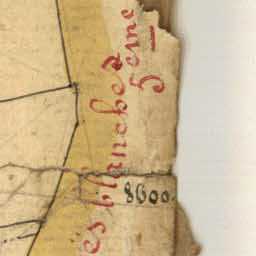 es blanches
5eme
8600.